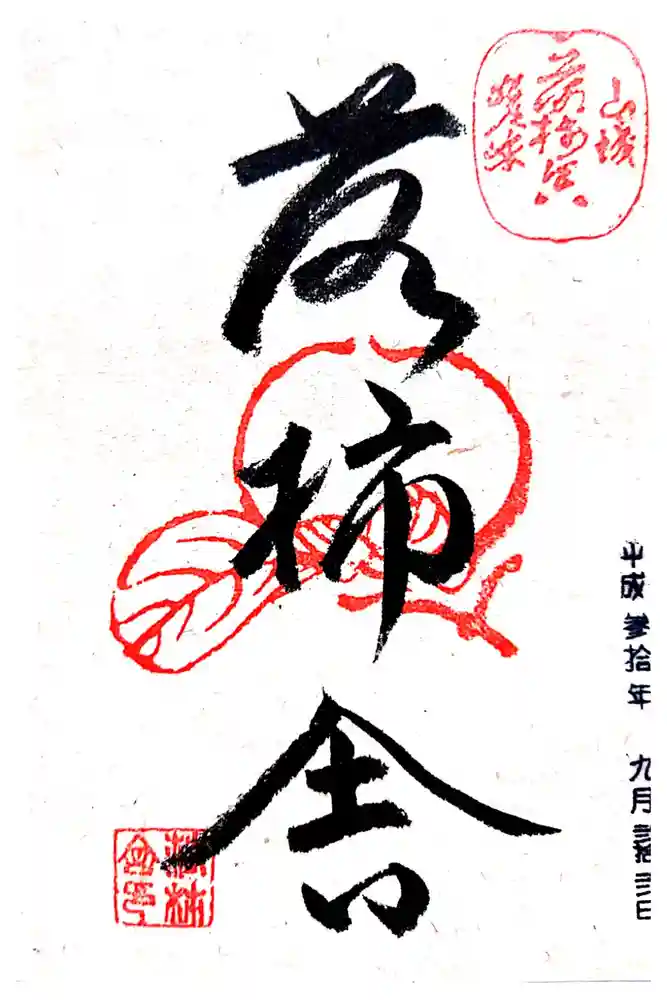 山城
落柿舎
嵯峨
落柿舎
平成参拾年 九月弐拾三日
落柿
舎印